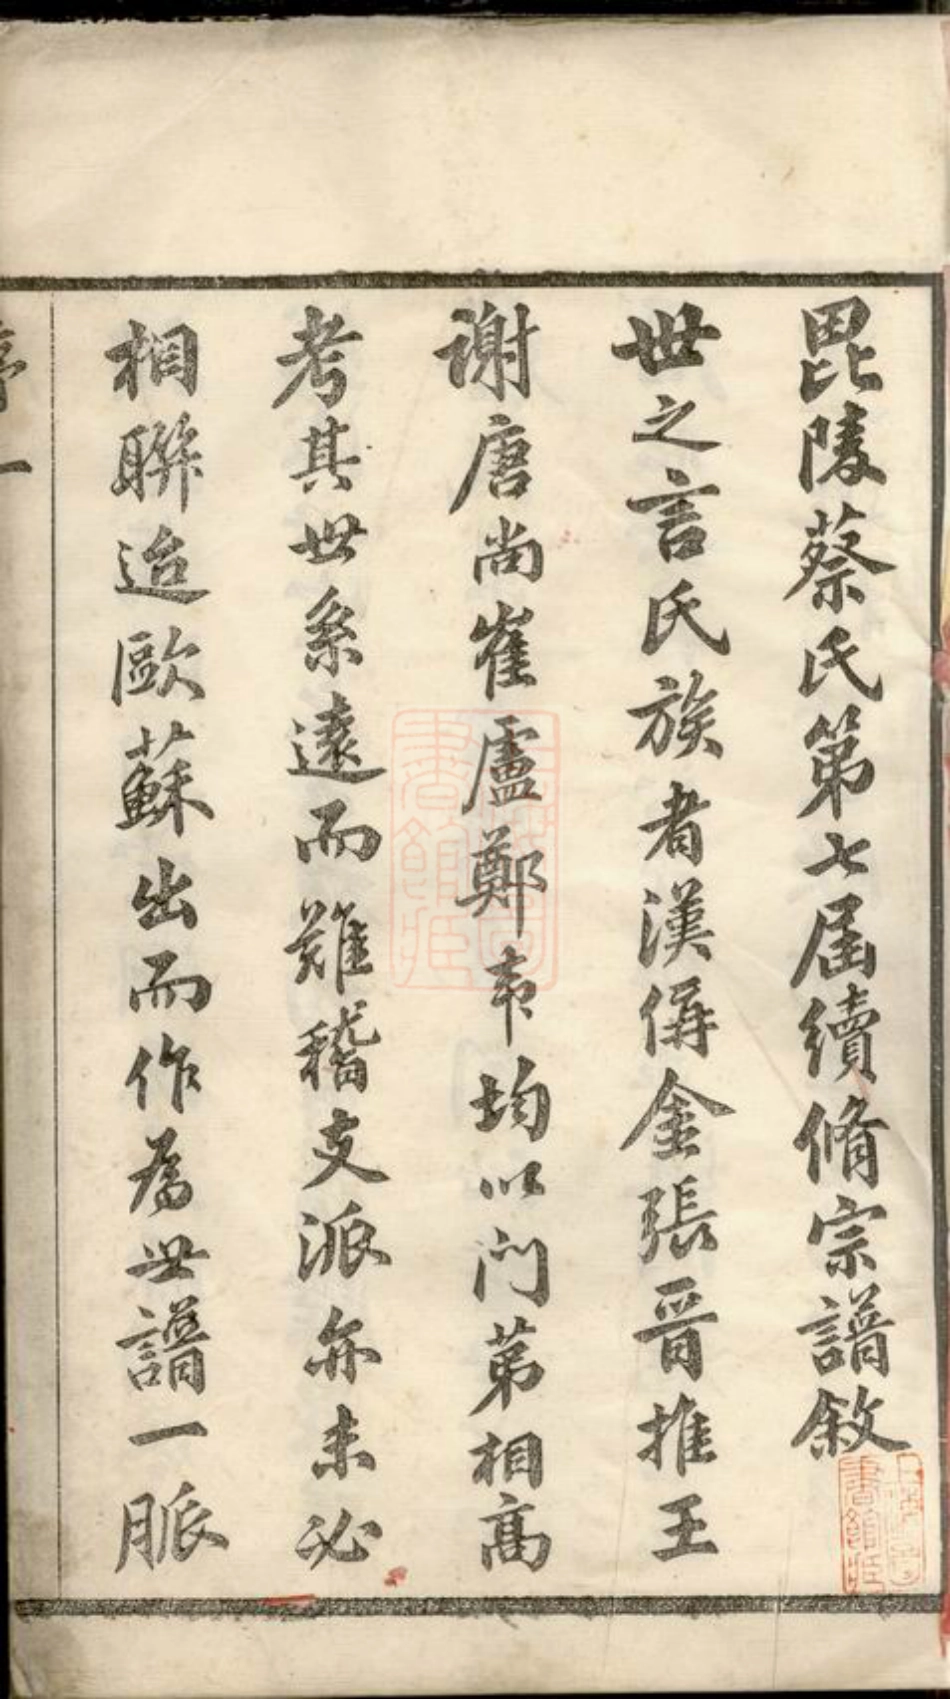 毘陵蔡氏第七屆續脩宗譜敘
世之言氏族者漢偁金張晉推王
謝唐尚崔盧鄭韋均以门苐相高
考其世系遠而難稽支派亦未必
相聯迨歐蘇出而作為世譜一脈
上海圖書館藏